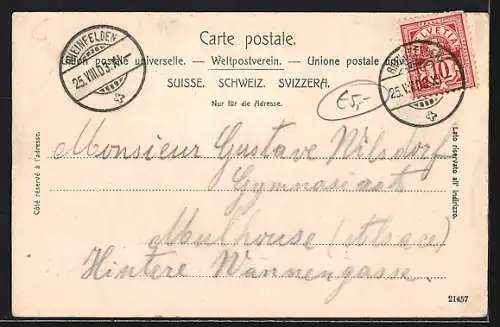 Carte postale.
Union postale universelle. — Weltpostverein. — Unione postale universale
SUISSE. SCHWEIZ. SVIZZERA.
Nur für die Adresse.
RHEINFELDEN
25.VIII.03.XI
HELVETIA
10
25.VIII.03
€5,-
Côté réservé à l'adresse.
Lato riservato all' indirizzo.
Monsieur Gustave Nilsdorf
Gymnasiast
Mulhouse (Alsace)
Hintere Wannengasse.
21457